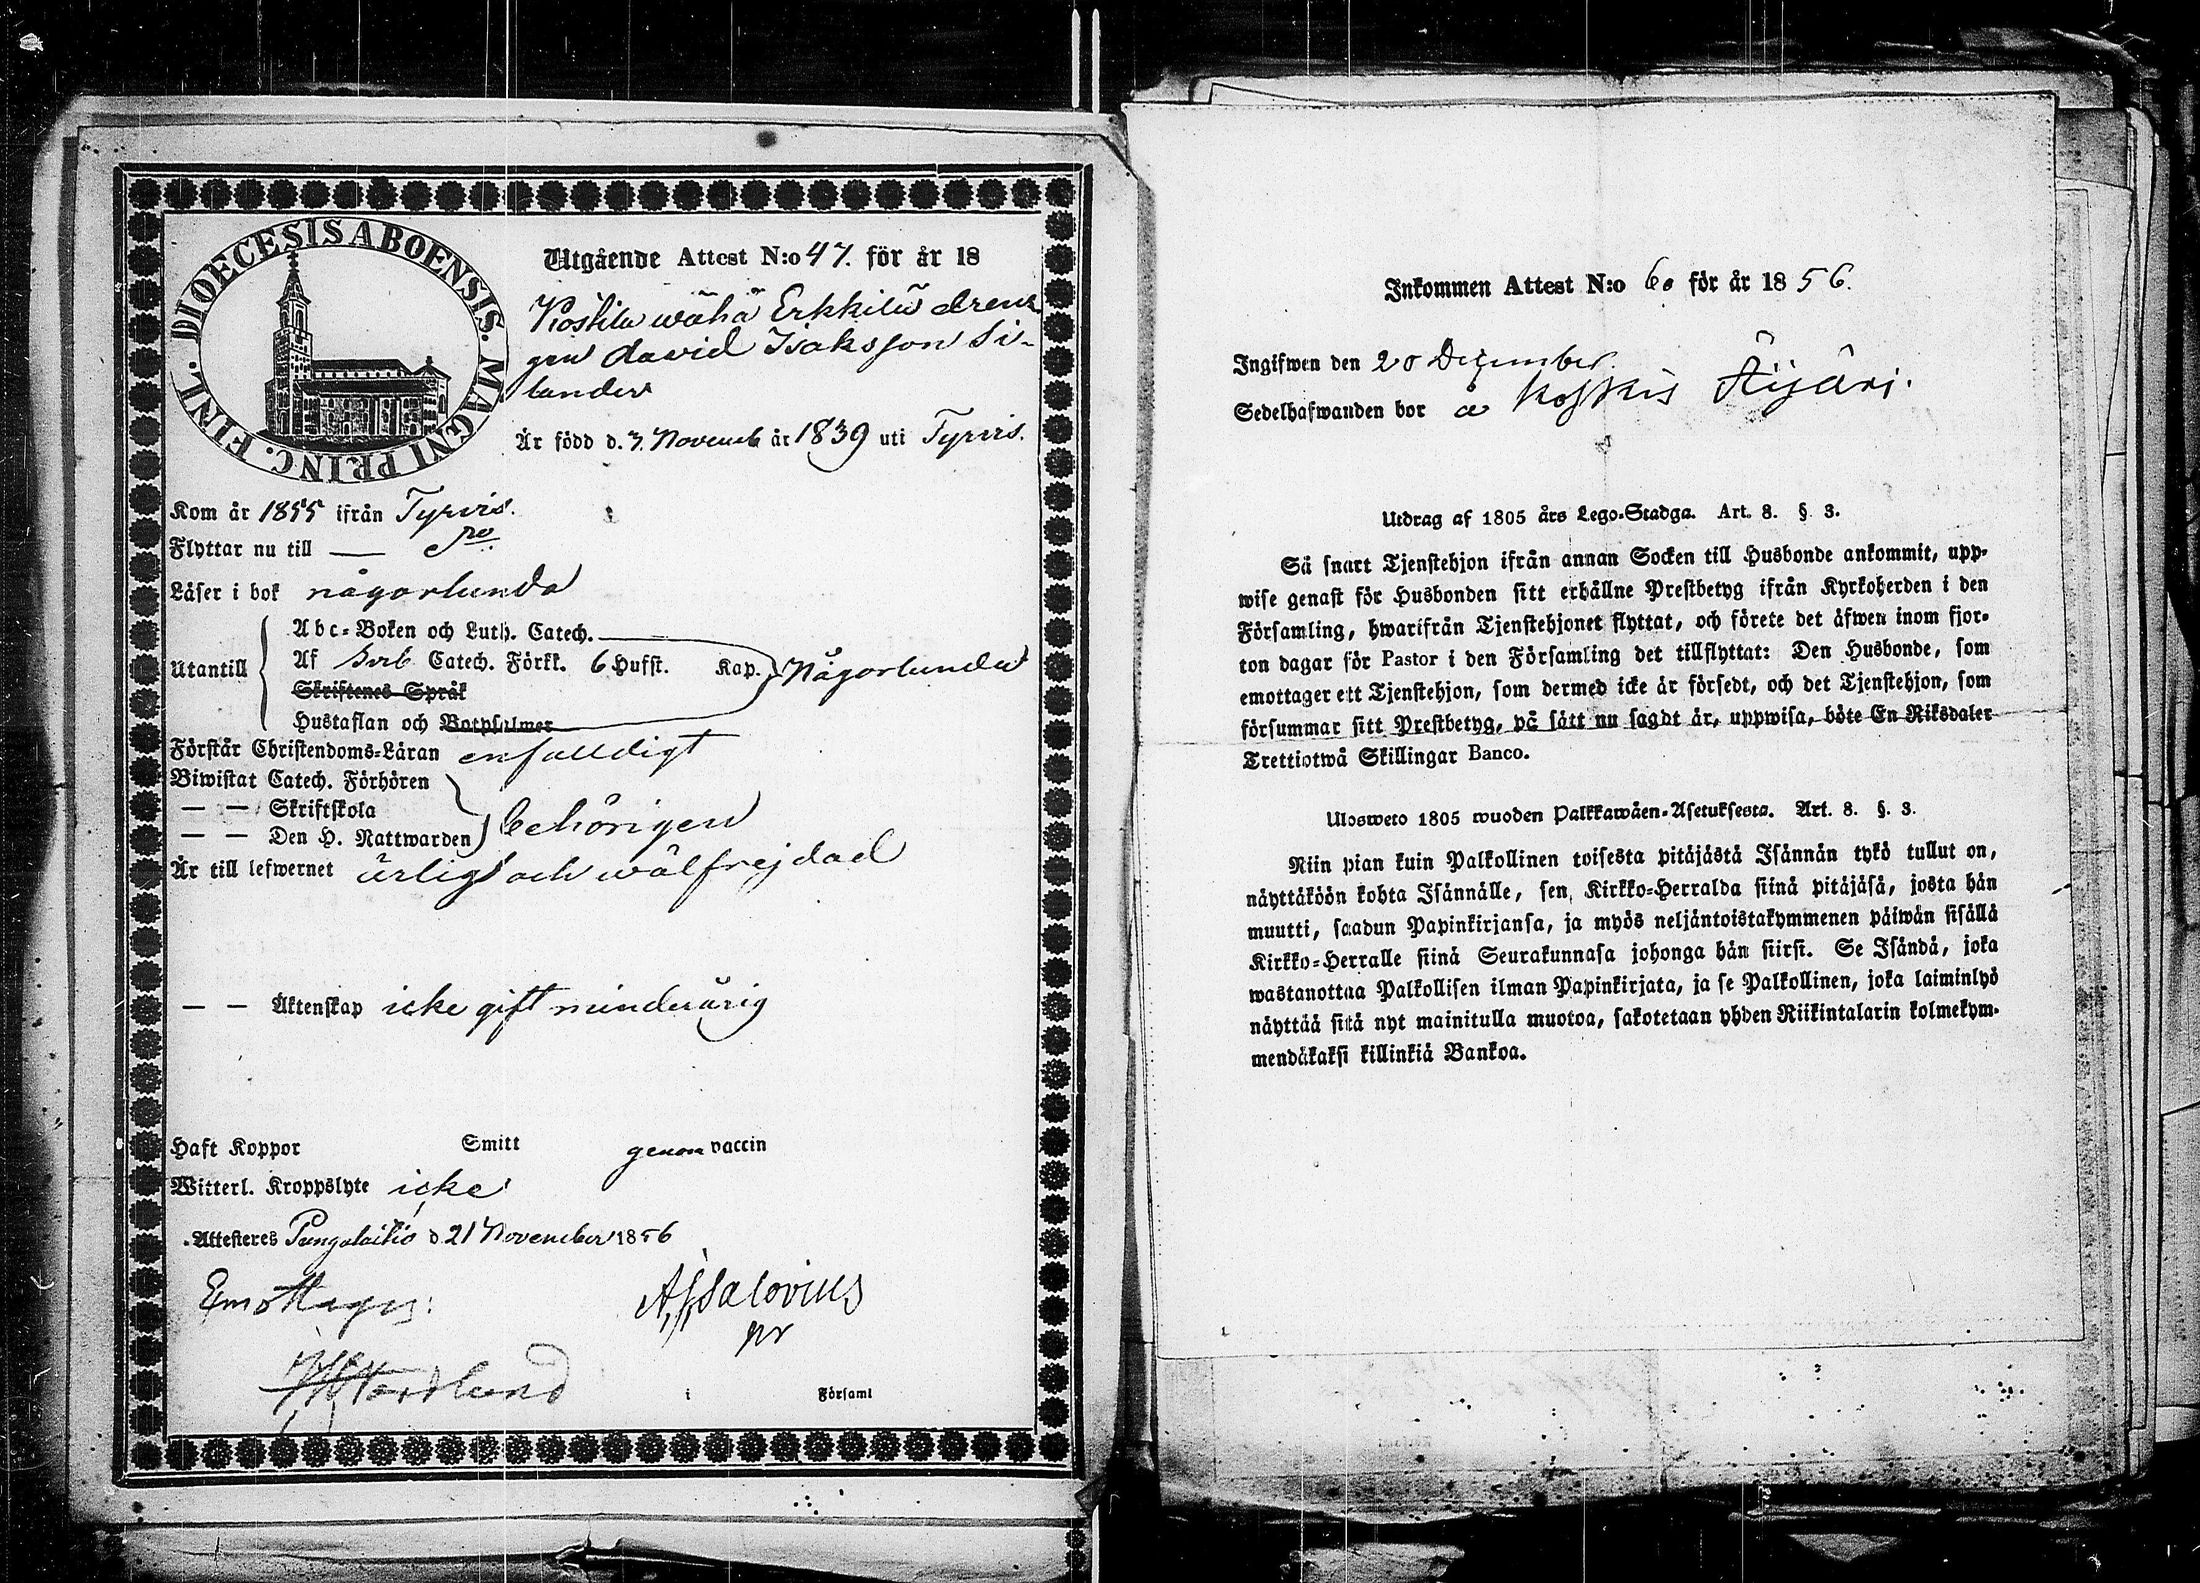 DIOECESIS ABOENSIS. MAGNI PRINC. FINL.
Utgående Attest N:o 47. för år 18
Kostila wähä Erkkilä dren
gen david Isaksson Si-
lander
Är född d. 7. Novemb år 1839 uti Tyrvis.
Kom år 1855 ifrån Tyrvis.
Flyttar nu till —
Läser i bok någorlunda
Utantill
Abc-Boken och Luth. Catech.
Af Sveb Catech. Förkl. 6 Hufst. Kap. Någorlunda
Skriftenes Språk
Hustaflan och Botpsalmer
Förstår Christendoms-Läran enfalldigt
Biwistat Catech. Förhören
— — Skriftskola
— — Den H. Nattwarden behörigen
Är till lefwernet ärlig och wälfrejdad
— — Äktenskap icke gift minderårig
Haft Koppor Smitt genom vaccin
Witterl. Kroppslyte icke
Attesteres Pungalaitio d 21 November 1856
Emottages:
A. J. Salovius
pr
Nordlund
i Församl
Inkommen Attest N:o 60 för år 1856.
Ingifwen den 20 December.
Sedelhafwanden bor å Koskis Äijäri.
Utdrag af 1805 års Lego-Stadga. Art. 8. § 3.
Så snart Tjenstehjon ifrån annan Socken till Husbonde ankommit, upp-
wise genast för Husbonden sitt erhållne Prestbetyg ifrån Kyrkoherden i den
Församling, hwarifrån Tjenstehjonet flyttat, och förete det äfwen inom fjor-
ton dagar för Pastor i den Församling det tillflyttat: Den Husbonde, som
emottager ett Tjenstehjon, som dermed icke är försedt, och det Tjenstehjon, som
försummar sitt Prestbetyg, på sätt nu sagdt är, uppwisa, böte En Riksdaler
Trettiotwå Skillingar Banco.
Ulosweto 1805 wuoden Palkkawäen-Asetuksesta. Art. 8. §. 3.
Niin pian kuin Palkollinen toisesta pitäjästä Isännän tykö tullut on,
näyttäköön kohta Isännälle, sen Kirkko-Herralda siinä pitäjäsä, josta hän
muutti, saadun Papinkirjansa, ja myös neljäntoistakymmenen päiwän sisällä
Kirkko-Herralle siinä Seurakunnasa johonga hän siirsi. Se Isändä, joka
wastanottaa Palkollisen ilman Papinkirjata, ja se Palkollinen, joka laiminlyö
näyttää sitä nyt mainitulla muotoa, sakotetaan yhden Riikintalarin kolmekym-
mendäkaksi killinkiä Bankoa.